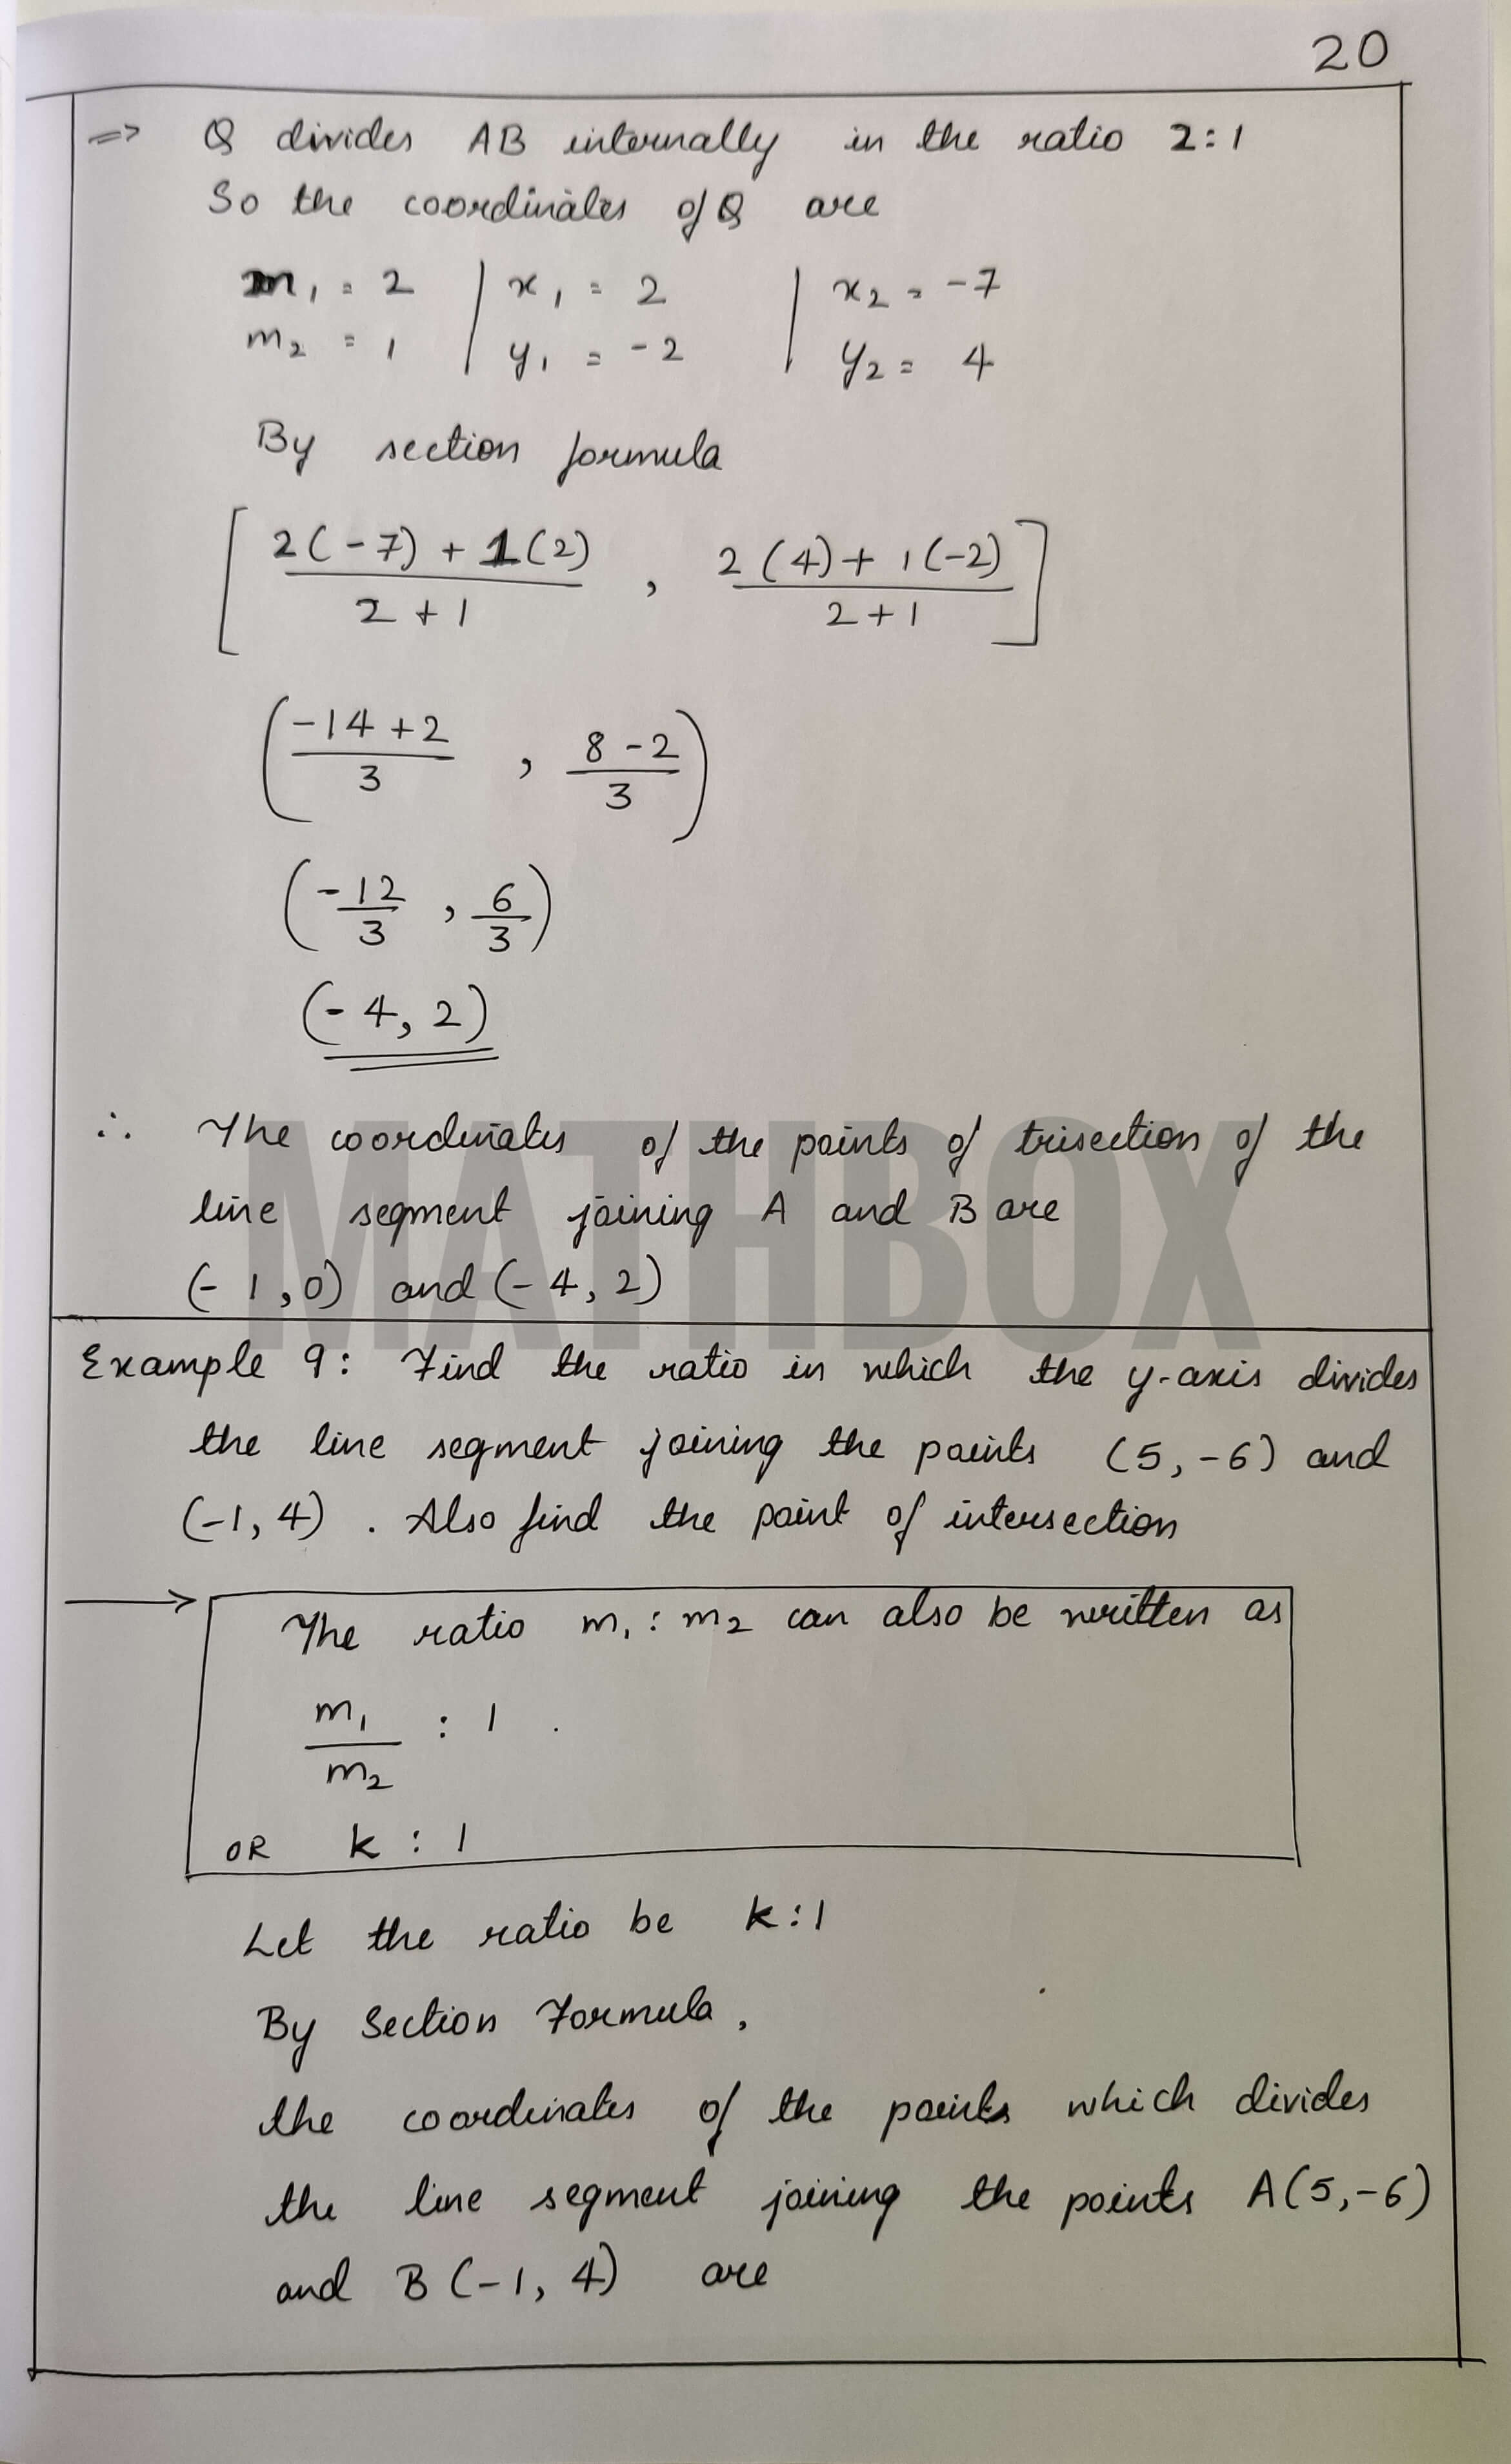 20
=> Q divides AB internally in the ratio 2:1
So the coordinates of Q are
m₁ = 2 | x₁ = 2 | x₂ = -7
m₂ = 1 | y₁ = -2 | y₂ = 4
By section formula
[ (2(-7) + 1(2))/(2+1) , (2(4) + 1(-2))/(2+1) ]
( (-14+2)/3 , (8-2)/3 )
( -12/3 , 6/3 )
(-4, 2)
∴ The coordinates of the points of trisection of the
line segment joining A and B are
(-1,0) and (-4, 2)
MATHBOX
Example 9: Find the ratio in which the y-axis divides
the line segment joining the points (5,-6) and
(-1, 4). Also find the point of intersection
→ The ratio m₁ : m₂ can also be written as
m₁/m₂ : 1 .
OR k : 1
Let the ratio be k:1
By Section Formula,
the coordinates of the points which divides
the line segment joining the points A(5,-6)
and B(-1, 4) are